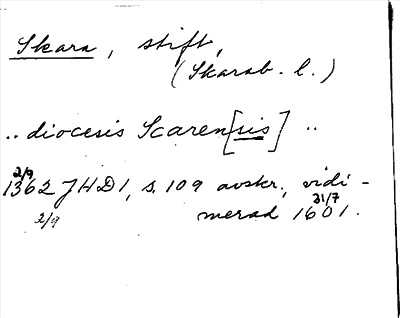 Skara, stift,
(Skarab. l.)
.. diocesis Scaren[sis] ..
2/9
1362 JHD1, s. 109 avskr., vidi-
31/7
2/9 merad 1601.